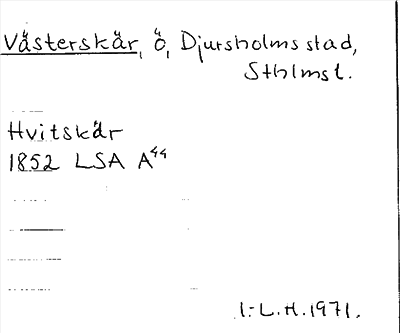 Västerskär, ö, Djursholms stad,
Sthlms l.
Hvitskär
1852 LSA A44
I.-L.H. 1971.